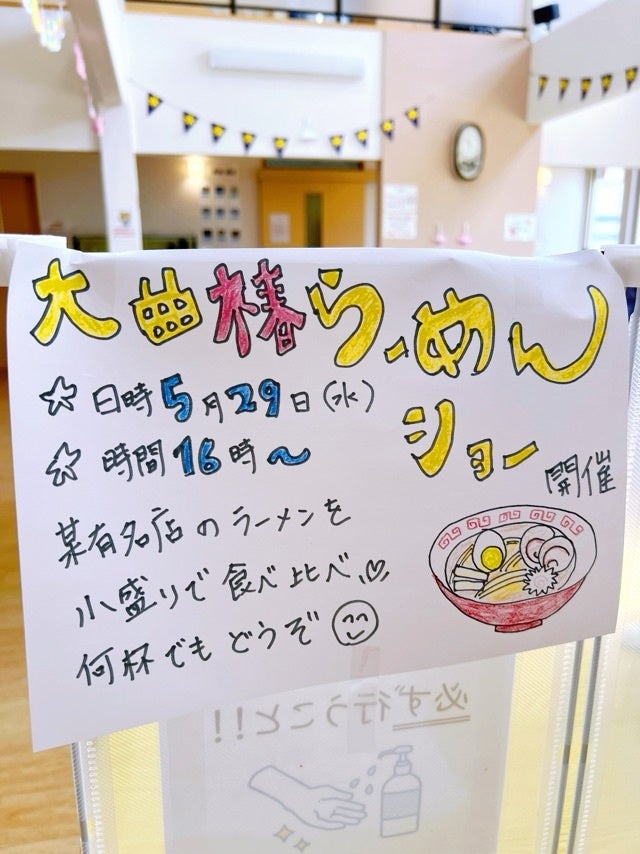 大曲椿らーめん
ショー
開催
☆日時5月29日(水)
☆時間16時~
某有名店のラーメンを
小盛りで食べ比べ♡
何杯でもどうぞ
必ず行うこと!!